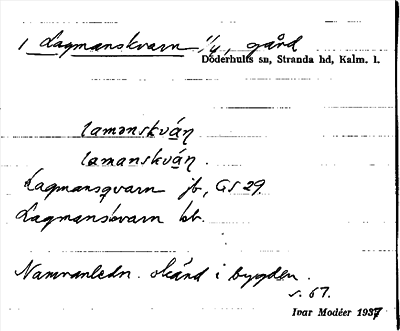 1 Lagmanskvarn 1/4, gård
Döderhults sn, Stranda hd, Kalm. l.
lamənskvá̱ṇ
lamanskvá̱ṇ.
Lagmansqvarn jb, GS 29.
Lagmanskvarn kb.
Namnanledn. okänd i bygden.
s. 67.
Ivar Modéer 1937